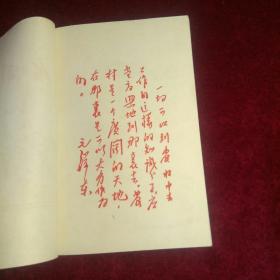 一切可以到農村中去
工作的這樣的知識分子，应
当高兴地到那裏去。農
村是一个廣闊的天地，
在那裏是可以大有作为
的。
毛澤东